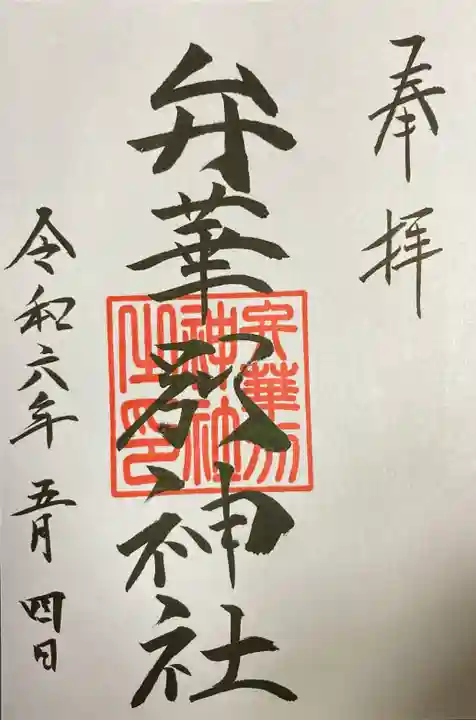 奉拝
弁華別神社
弁華別
神社
之印
令和六年 五月 四日